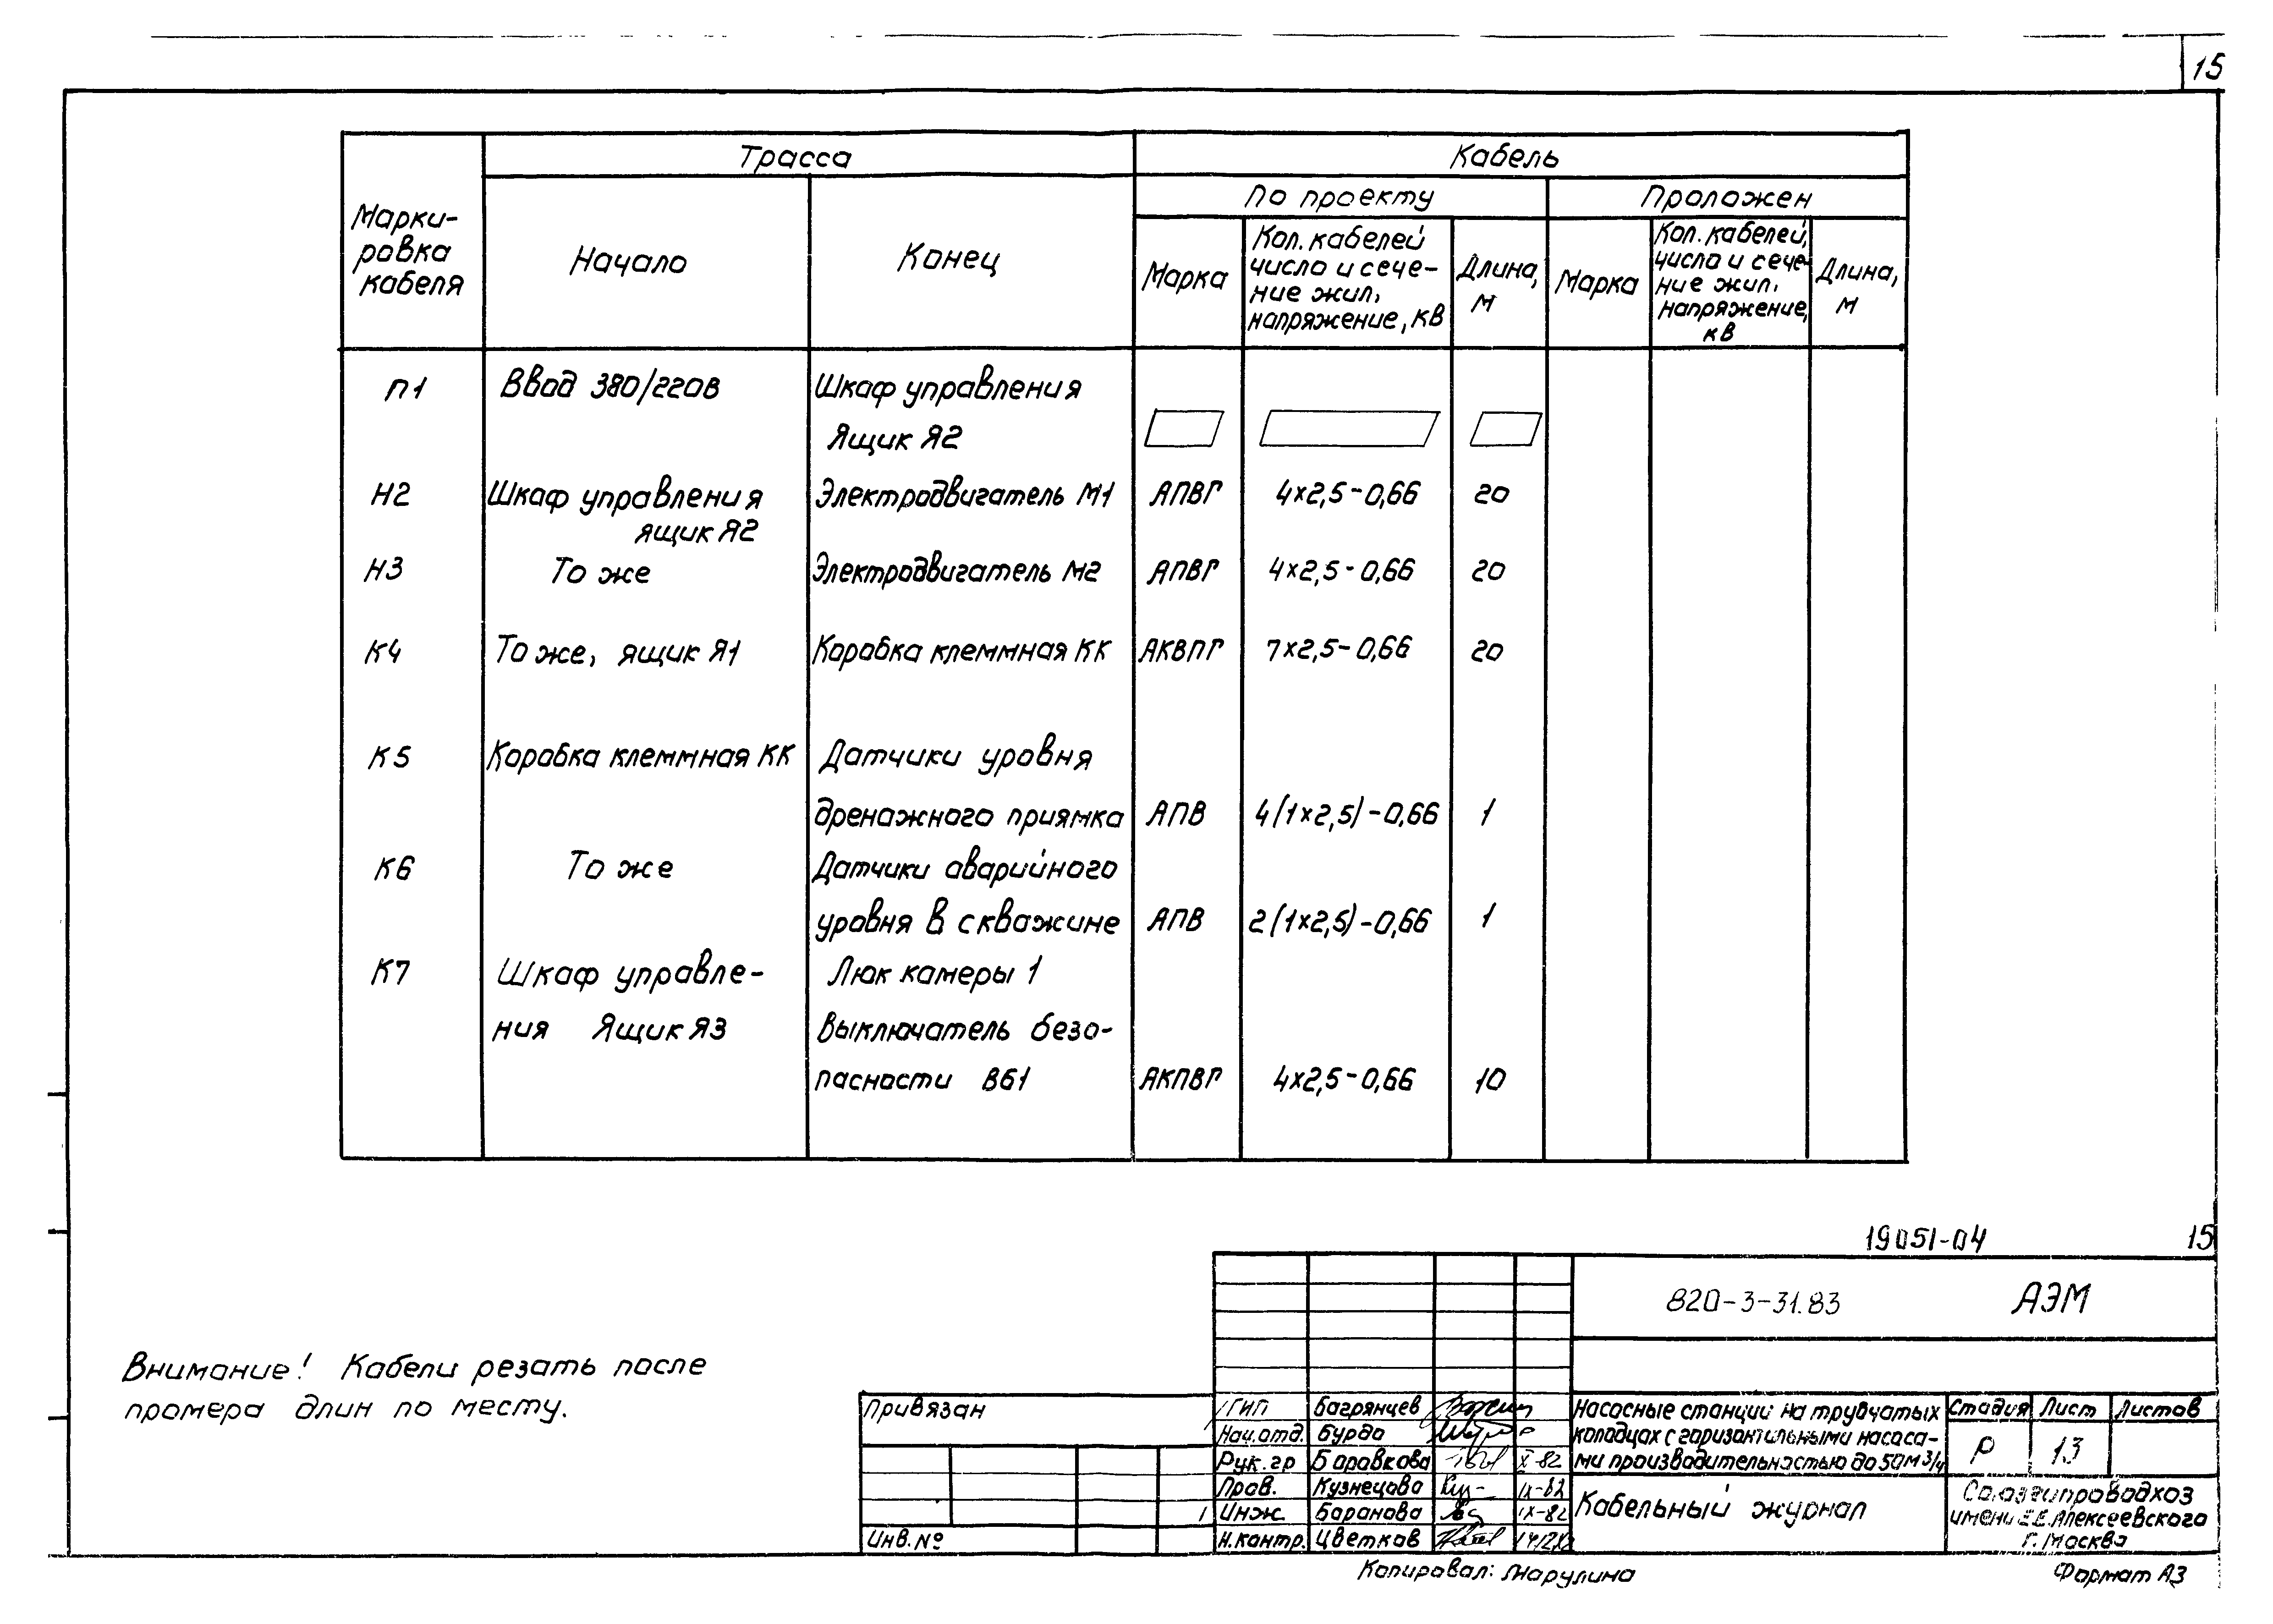 15
Трасса
Кабель
По проекту
Проложен
Марки-
ровка
кабеля
Начало
Конец
Марка
Кол. кабелей
число и сече-
ние жил,
напряжение, кВ
Длина,
м
Марка
Кол. кабелей,
число и сече-
ние жил,
напряжение,
кВ
Длина,
м
П1 Ввод 380/220В Шкаф управления
Ящик Я2
Н2 Шкаф управления Электродвигатель М1 АПВГ 4×2,5-0,66 20
ящик Я2
Н3 То же Электродвигатель М2 АПВГ 4×2,5-0,66 20
К4 То же, ящик Я1 Коробка клеммная КК АКВПГ 7×2,5-0,66 20
К5 Коробка клеммная КК Датчики уровня
дренажного приямка АПВ 4(1×2,5)-0,66 1
К6 То же Датчики аварийного
уровня в скважине АПВ 2(1×2,5)-0,66 1
К7 Шкаф управле- Люк камеры 1
ния Ящик Я3 Выключатель безо-
пасности ВБ1 АКПВГ 4×2,5-0,66 10
19051-04 15
820-3-31.83 АЭМ
Внимание! Кабели резать после
промера длин по месту.
Привязан
Инв. №
ГИП Багрянцев
Нач.отд. Бурда
Рук.гр Боровкова X-82
Пров. Кузнецова IX-82
Инж. Баранова IX-82
Н.контр. Цветков
Насосные станции на трубчатых
колодцах с горизонтальными насоса-
ми производительностью до 50м3/ч
Стадия Лист Листов
Р 13
Кабельный журнал
Союзгипроводхоз
имени Е.Е.Алексеевского
г. Москва
Копировал: Жарулина
Формат А3